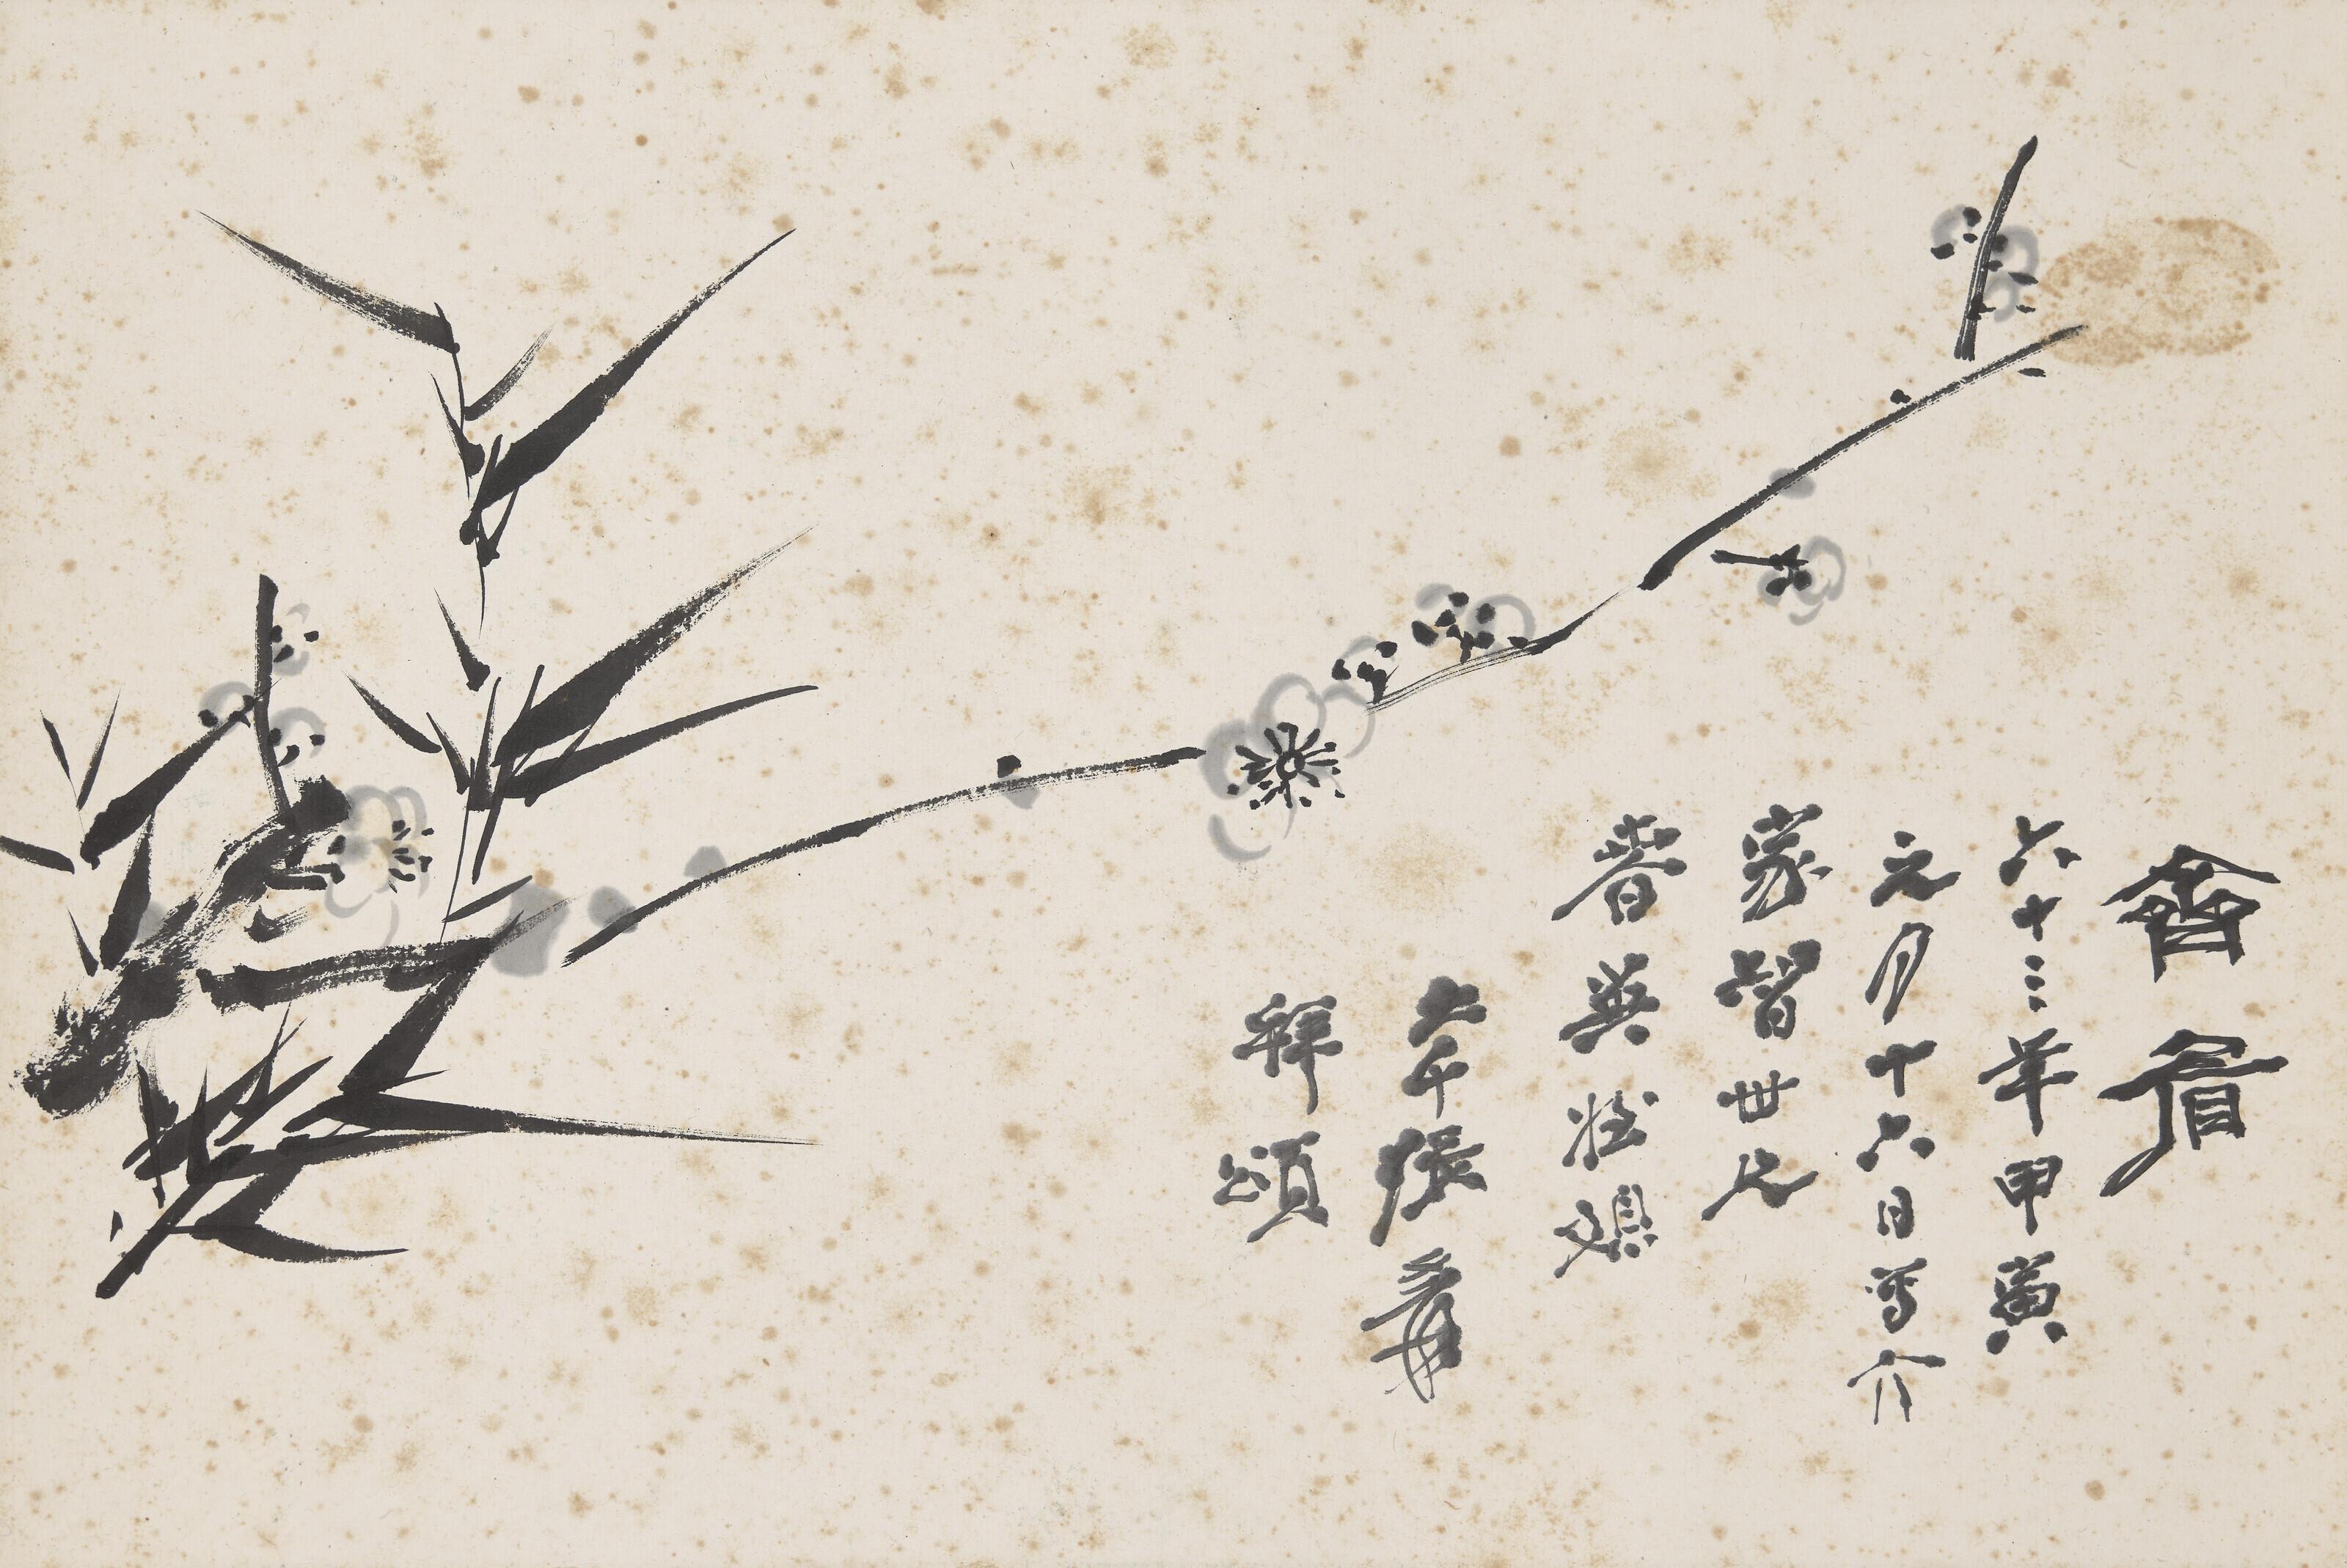 齊眉
六十三年甲寅
元月十六日寫介
家智世兄
春英
大千張爰
拜頌